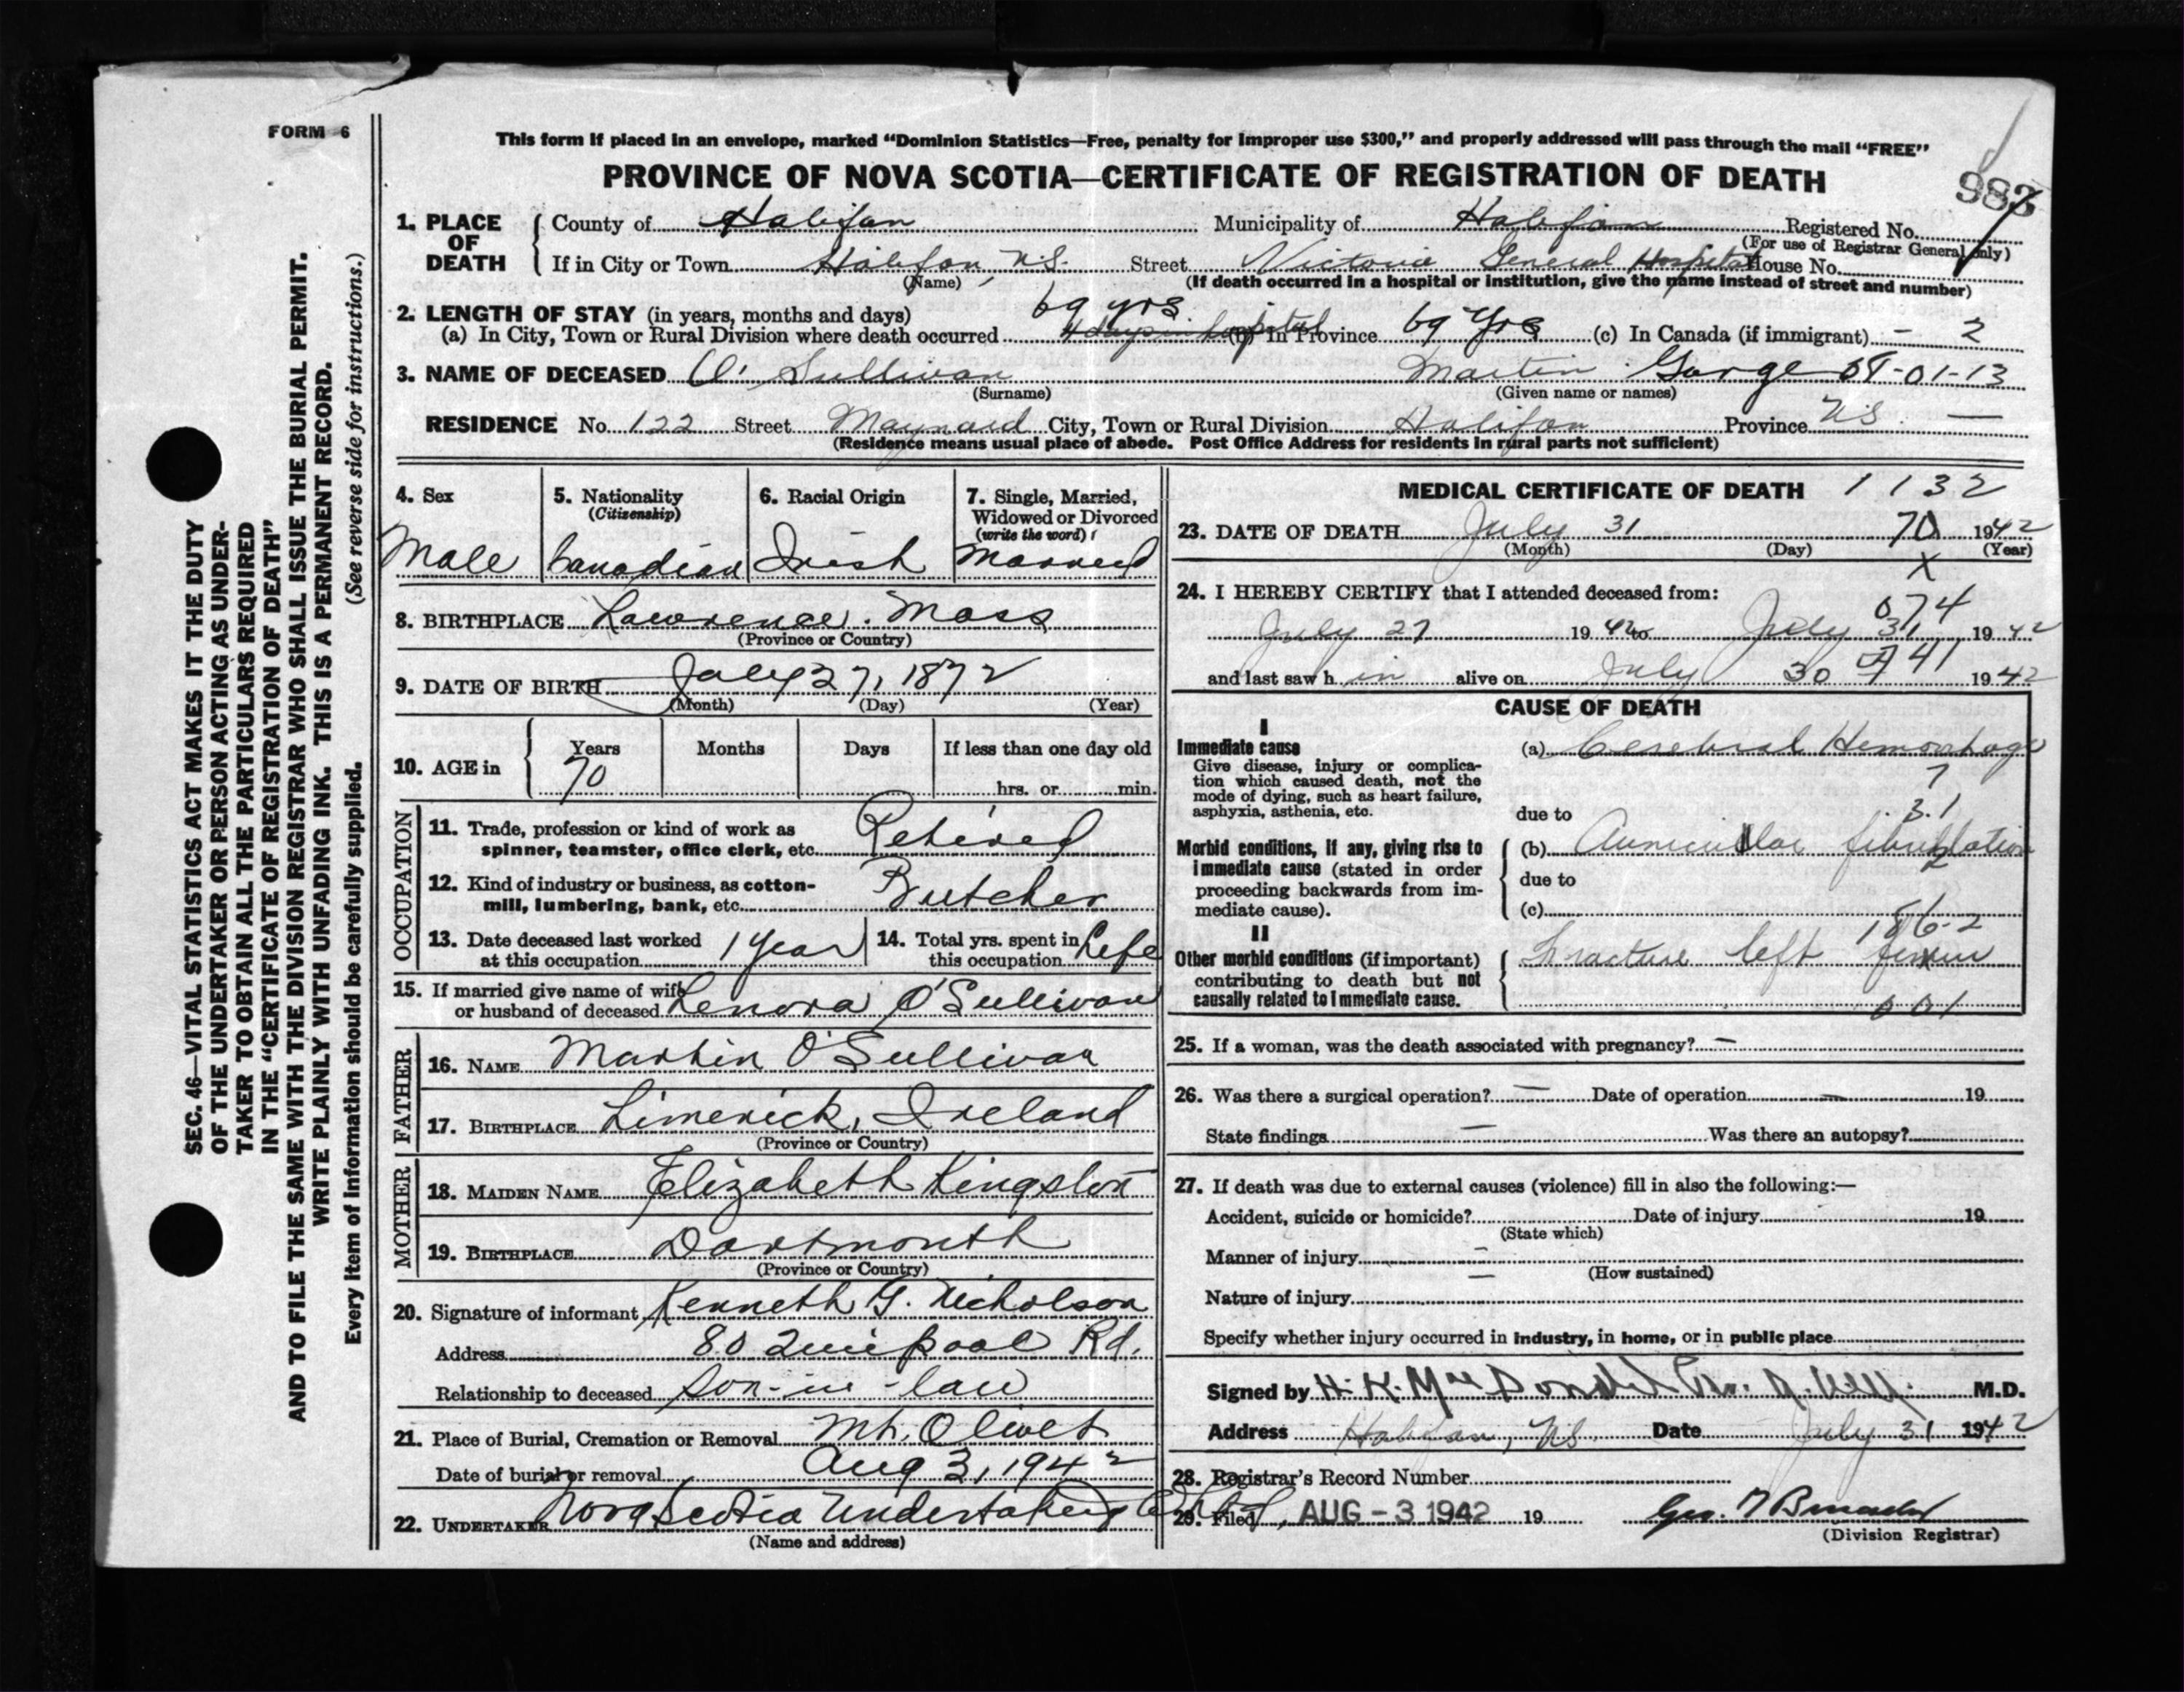 FORM 6
This form if placed in an envelope, marked “Dominion Statistics—Free, penalty for improper use $300,” and properly addressed will pass through the mail “FREE”
PROVINCE OF NOVA SCOTIA—CERTIFICATE OF REGISTRATION OF DEATH
983
1. PLACE OF DEATH
County of Halifax Municipality of Halifax Registered No.
(For use of Registrar General only)
If in City or Town Halifax, N.S. Street Victoria General Hospital House No.
(Name) (If death occurred in a hospital or institution, give the name instead of street and number)
2. LENGTH OF STAY (in years, months and days) 69 yrs
(a) In City, Town or Rural Division where death occurred 4 days in hospital (b) In Province 69 Yrs (c) In Canada (if immigrant) – 2
3. NAME OF DECEASED O' Sullivan Martin George 01-13
(Surname) (Given name or names)
RESIDENCE No. 122 Street Maynard City, Town or Rural Division Halifax Province N.S. —
(Residence means usual place of abode. Post Office Address for residents in rural parts not sufficient)
4. Sex
Male
5. Nationality
(Citizenship)
Canadian
6. Racial Origin
Irish
7. Single, Married,
Widowed or Divorced
(write the word)
Married
8. BIRTHPLACE Lawrence. Mass
(Province or Country)
9. DATE OF BIRTH July 27, 1872
(Month) (Day) (Year)
10. AGE in
Years Months Days If less than one day old
70 hrs. or min.
OCCUPATION
11. Trade, profession or kind of work as
spinner, teamster, office clerk, etc. Retired
12. Kind of industry or business, as cotton-
mill, lumbering, bank, etc. Butcher
13. Date deceased last worked
at this occupation 1 Year
14. Total yrs. spent in
this occupation Life
15. If married give name of wife
or husband of deceased Lenora O'Sullivan
FATHER
16. NAME Martin O'Sullivan
17. BIRTHPLACE Limerick, Ireland
(Province or Country)
MOTHER
18. MAIDEN NAME Elizabeth Kingston
19. BIRTHPLACE Dartmouth
(Province or Country)
20. Signature of informant Kenneth G. Nicholson
Address 80 Quinpool Rd.
Relationship to deceased Son-in-law
21. Place of Burial, Cremation or Removal Mt. Olivet
Date of burial or removal Aug 3, 1942
22. UNDERTAKER Nova Scotia Undertaking
(Name and address)
MEDICAL CERTIFICATE OF DEATH 1132
23. DATE OF DEATH July 31 70 1942
(Month) (Day) (Year)
X
24. I HEREBY CERTIFY that I attended deceased from:
074
July 27 1942 to July 31 1942
and last saw h im alive on July 30 A 41 1942
CAUSE OF DEATH
I
Immediate cause
Give disease, injury or complica-
tion which caused death, not the
mode of dying, such as heart failure,
asphyxia, asthenia, etc.
(a) Cerebral Hemorrhage
7
due to 3.1
Morbid conditions, if any, giving rise to
immediate cause (stated in order
proceeding backwards from im-
mediate cause).
(b) Auricular fibrillation
due to
(c)
186-2
II
Other morbid conditions (if important)
contributing to death but not
causally related to immediate cause.
Fracture left femur
001
25. If a woman, was the death associated with pregnancy? –
26. Was there a surgical operation? — Date of operation — 19
State findings — Was there an autopsy?
27. If death was due to external causes (violence) fill in also the following:—
Accident, suicide or homicide? Date of injury 19
(State which)
Manner of injury —
(How sustained)
Nature of injury —
Specify whether injury occurred in industry, in home, or in public place
Signed by H. K. MacDonald M.D.
Address Halifax, N.S. Date July 31 1942
28. Registrar's Record Number
29. Filed AUG - 3 1942 19
(Division Registrar)
SEC. 46—VITAL STATISTICS ACT MAKES IT THE DUTY
OF THE UNDERTAKER OR PERSON ACTING AS UNDER-
TAKER TO OBTAIN ALL THE PARTICULARS REQUIRED
IN THE “CERTIFICATE OF REGISTRATION OF DEATH”
AND TO FILE THE SAME WITH THE DIVISION REGISTRAR WHO SHALL ISSUE THE BURIAL PERMIT.
WRITE PLAINLY WITH UNFADING INK. THIS IS A PERMANENT RECORD.
Every item of information should be carefully supplied. (See reverse side for instructions.)